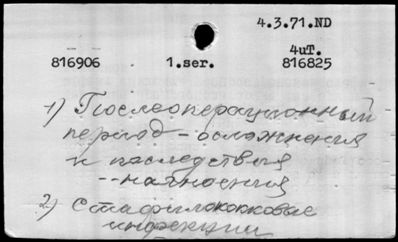 4.3.71.ND
4uT.
816906 1.ser. 816825
1) Послеоперационный
период - осложнения
и последствия
-- нагноения
2) стафилококковые
инфекции